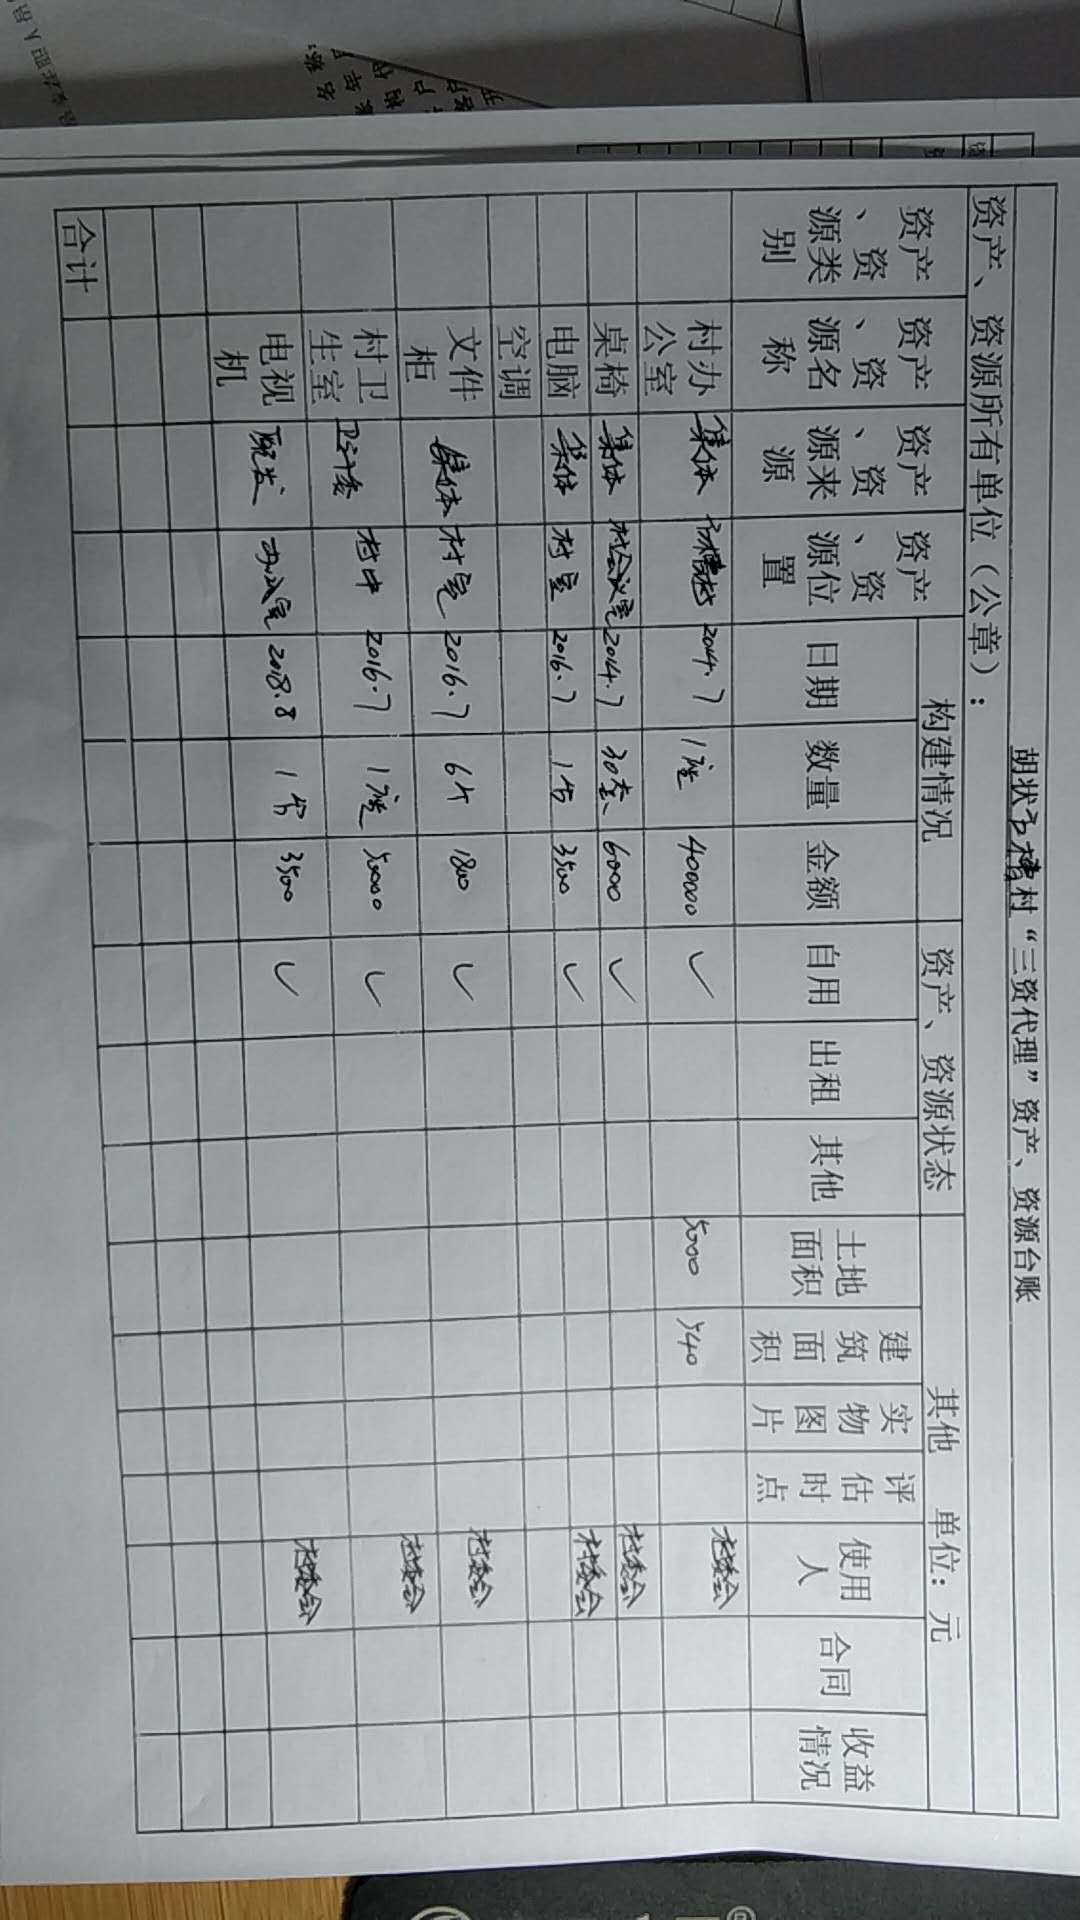 胡状 村“三资代理”资产、资源台账
资产、资源所有单位（公章）： 单位：元
资产、资源类别 资产、资源名称 资产、资源来源 资产、资源位置 构建情况 资产、资源状态 其他
日期 数量 金额 自用 出租 其他 土地面积 建筑面积 实物图片 评估时点 使用人 合同 收益情况
村办公室 集体 2014.7 1座 400000 ✓ 5000 540 村委会
桌椅 集体 村会议室 2014.7 30套 6000 ✓ 村委会
电脑 集体 村室 2016.7 1台 3500 ✓ 村委会
空调
文件柜 集体 村室 2016.7 6个 1800 ✓ 村委会
村卫生室 卫计委 村中 2016.7 1座 50000 ✓ 村委会
电视机 配发 2018.8 1台 3500 ✓ 村委会
合计